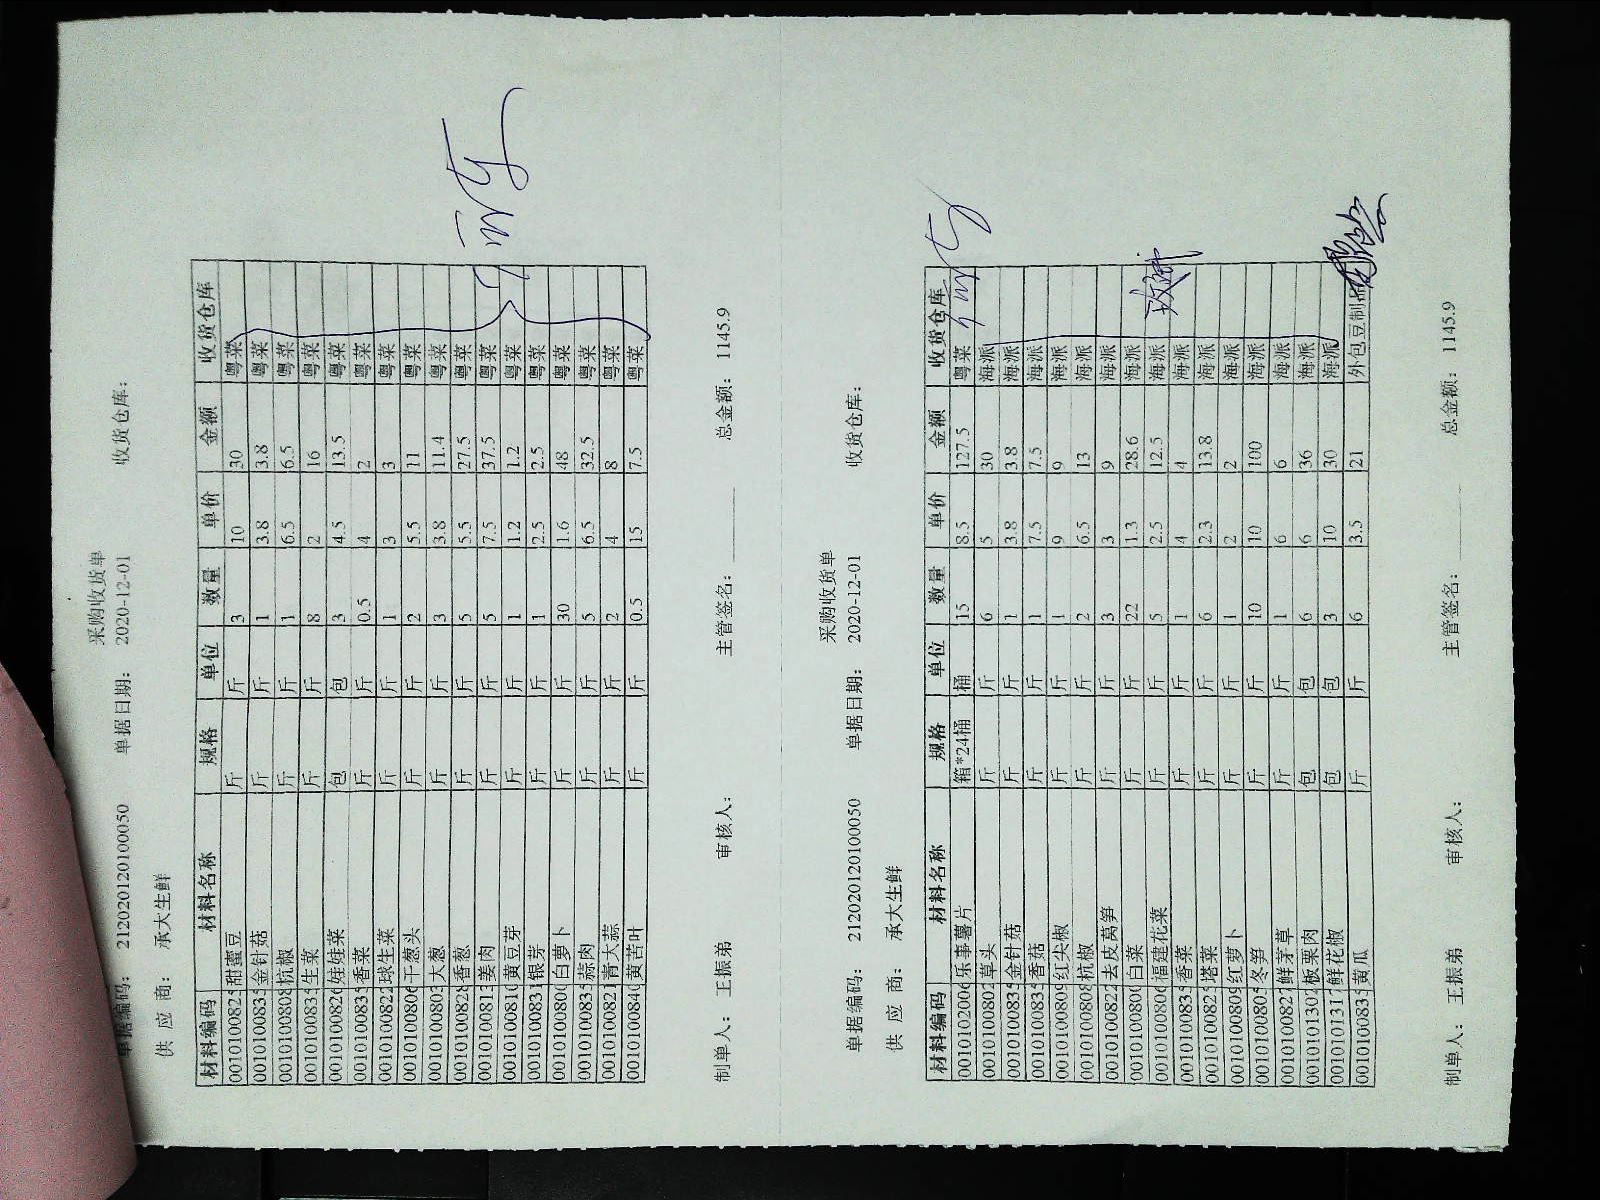 采购收货单
单据编码： 21202012010100050 单据日期： 2020-12-01 收货仓库：
供 应 商： 承大生鲜
材料编码 材料名称 规格 单位 数量 单价 金额 收货仓库
0010100825 甜蜜豆 斤 斤 3 10 30 粤菜
0010100835 金针菇 斤 斤 1 3.8 3.8 粤菜
0010100808 杭椒 斤 斤 1 6.5 6.5 粤菜
0010100834 生菜 斤 斤 8 2 16 粤菜
0010100826 娃娃菜 包 包 3 4.5 13.5 粤菜
0010100833 香菜 斤 斤 0.5 4 2 粤菜
0010100822 球生菜 斤 斤 1 3 3 粤菜
0010100806 干葱头 斤 斤 2 5.5 11 粤菜
0010100803 大葱 斤 斤 3 3.8 11.4 粤菜
0010100828 香葱 斤 斤 5 5.5 27.5 粤菜
0010100813 姜肉 斤 斤 5 7.5 37.5 粤菜
0010100810 黄豆芽 斤 斤 1 1.2 1.2 粤菜
0010100831 银芽 斤 斤 1 2.5 2.5 粤菜
0010100800 白萝卜 斤 斤 30 1.6 48 粤菜
0010100835 蒜肉 斤 斤 5 6.5 32.5 粤菜
0010100821 青大蒜 斤 斤 2 4 8 粤菜
0010100840 黄苦叶 斤 斤 0.5 15 7.5 粤菜
制单人： 王振弟 审核人： 主管签名： 总金额： 1145.9
采购收货单
单据编码： 21202012010100050 单据日期： 2020-12-01 收货仓库：
供 应 商： 承大生鲜
材料编码 材料名称 规格 单位 数量 单价 金额 收货仓库
0010102006 乐事薯片 箱*24桶 桶 15 8.5 127.5 粤菜
0010100802 草头 斤 斤 6 5 30 海派
0010100835 金针菇 斤 斤 1 3.8 3.8 海派
0010100835 香菇 斤 斤 1 7.5 7.5 海派
0010100809 红尖椒 斤 斤 1 9 9 海派
0010100808 杭椒 斤 斤 2 6.5 13 海派
0010100822 去皮莴笋 斤 斤 3 3 9 海派
0010100800 白菜 斤 斤 22 1.3 28.6 海派
0010100806 福建花菜 斤 斤 5 2.5 12.5 海派
0010100833 香菜 斤 斤 1 4 4 海派
0010100823 塔菜 斤 斤 6 2.3 13.8 海派
0010100809 红萝卜 斤 斤 1 2 2 海派
0010100805 冬笋 斤 斤 10 10 100 海派
0010100827 鲜茅草 斤 斤 1 6 6 海派
0010101302 板栗肉 包 包 6 6 36 海派
0010101317 鲜花椒 包 包 3 10 30 海派
0010100835 黄瓜 斤 斤 6 3.5 21 外包豆制品
制单人： 王振弟 审核人： 主管签名： 总金额： 1145.9